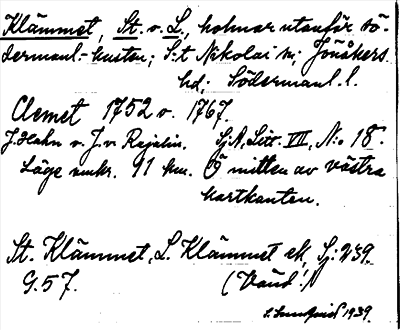 Klämmet, St. o. L., holmar utanför Sö-
dermanl.-kusten; S:t Nikolai sn; Jönåkers
hd; Södermanl. l.
Clemet 1752 o. 1767.
J. Hahn o. J. v. Rajalin. Sj. A, Litt. VII, N:o 18.
Läge unkr. 91 km. Ö mitten av västra
kartkanten.
St. Klämmet, L. Klämmet ek, Sj: 239.
G. 57. (Vänd!)
1939.